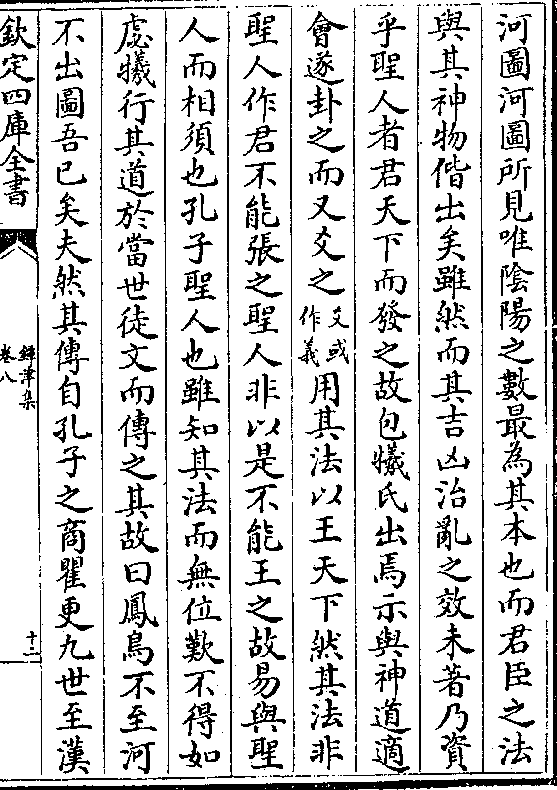 河圖河圖所見唯陰陽之數最為其本也而君臣之法
與其神物偕出矣雖然而其吉凶治亂之效未著乃資
乎聖人者君天下而發之故包犧氏出焉示與神道適
會遂卦之而又爻之爻或作義用其法以王天下然其法非
聖人作君不能張之聖人非以是不能王之故易與聖
人而相須也孔子聖人也雖知其法而無位歎不得如
虙犧行其道於當世徒文而傳之其故曰鳳鳥不至河
不出圖吾已矣夫然其傳自孔子之商瞿更九世至漢
欽定四庫全書
鐔津集
卷八
十二